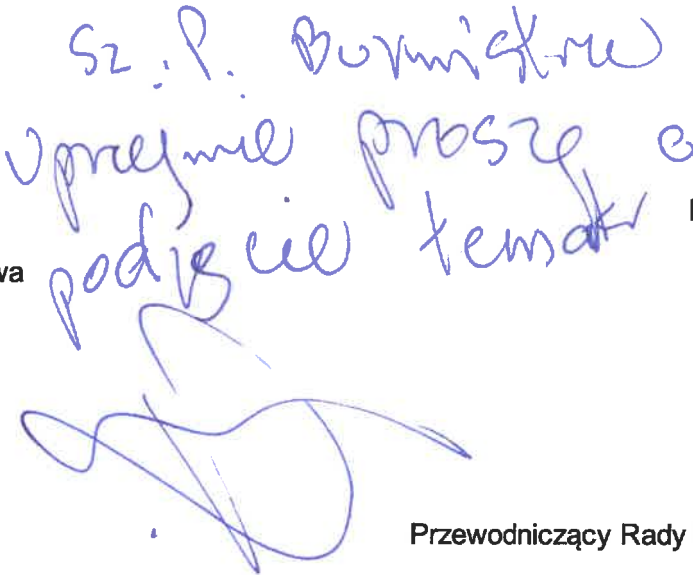 Sz. P. Burmistrze
Uprzejmie proszę o
podjęcie tematu
wa
Przewodniczący Rady